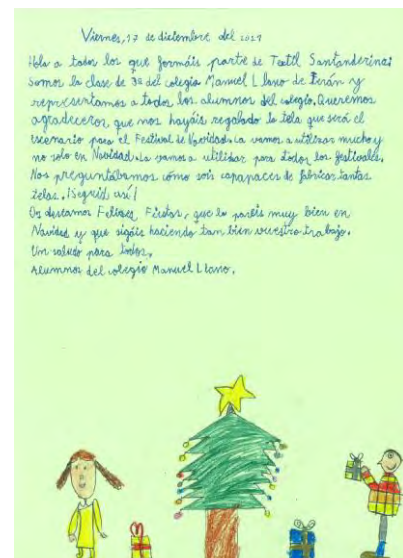 Viernes, 17 de diciembre del 2021
Hola a todos los que formáis parte de Textil Santanderina:
Somos la clase de 3º del colegio Manuel Llano de Terán y
representamos a todos los alumnos del colegio. Queremos
agradeceros, que nos hayáis regalado la tela que será el
escenario para el Festival de Navidad. La vamos a utilizar mucho y
no solo en Navidad. La vamos a utilizar para todos los festivales.
Nos preguntábamos cómo sois capapaces de fabricar tantas
telas. ¡Seguid así!
Os deseamos Felices Fiestas, que lo paséis muy bien en
Navidad y que sigáis haciendo tan bien vuestro trabajo.
Un saludo para todos,
Alumnos del colegio Manuel Llano.